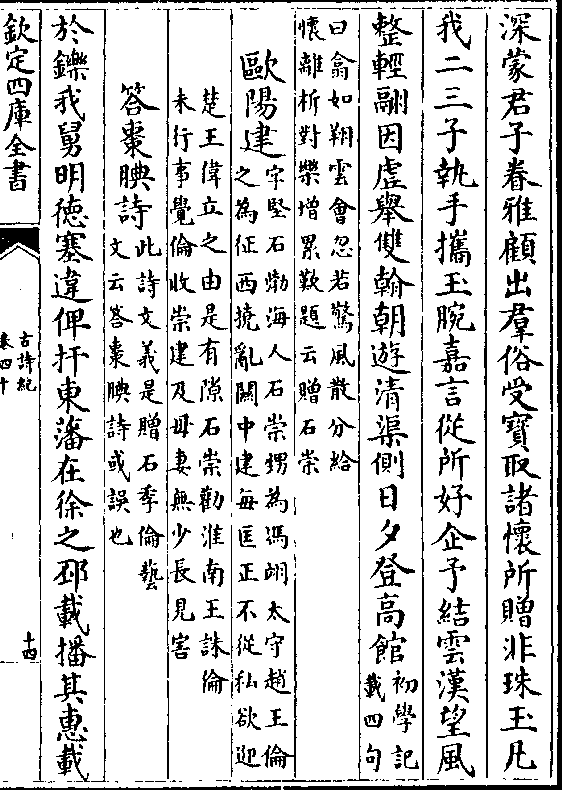 深蒙君子眷雅顧出羣俗受寶取諸懷所贈非珠玉凡
我二三子執手攜玉腕嘉言從所好企予結雲漢望風
整輕翮因虛舉雙翰朝遊清渠側日夕登高館初學記
載四句
曰翕如翔雲會忽若驚風散分給
懷離析對樂增累歎題云贈石崇
歐陽建字堅石渤海人石崇甥為馮翊太守趙王倫
之為征西撓亂關中建每匡正不從私欲迎
楚王偉立之由是有隙石崇勸淮南王誅倫
未行事覺倫收崇建及母妻無少長見害
答棗腆詩此詩文義是贈石季倫藝
文云答棗腆詩或誤也
於鑠我舅明德塞違俾扞東藩在徐之邳載播其惠載
欽定四庫全書
古詩紀
卷四十
十四